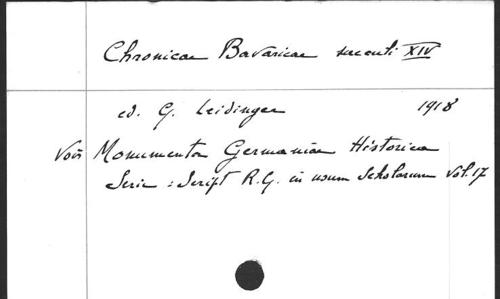 Chronicae Bavaricae saeculi XIV
ed. G. Leidinger 1918
Voir Monumenta Germaniae Historica
Serie : Script R.G. in usum Scholarum Vol. 17